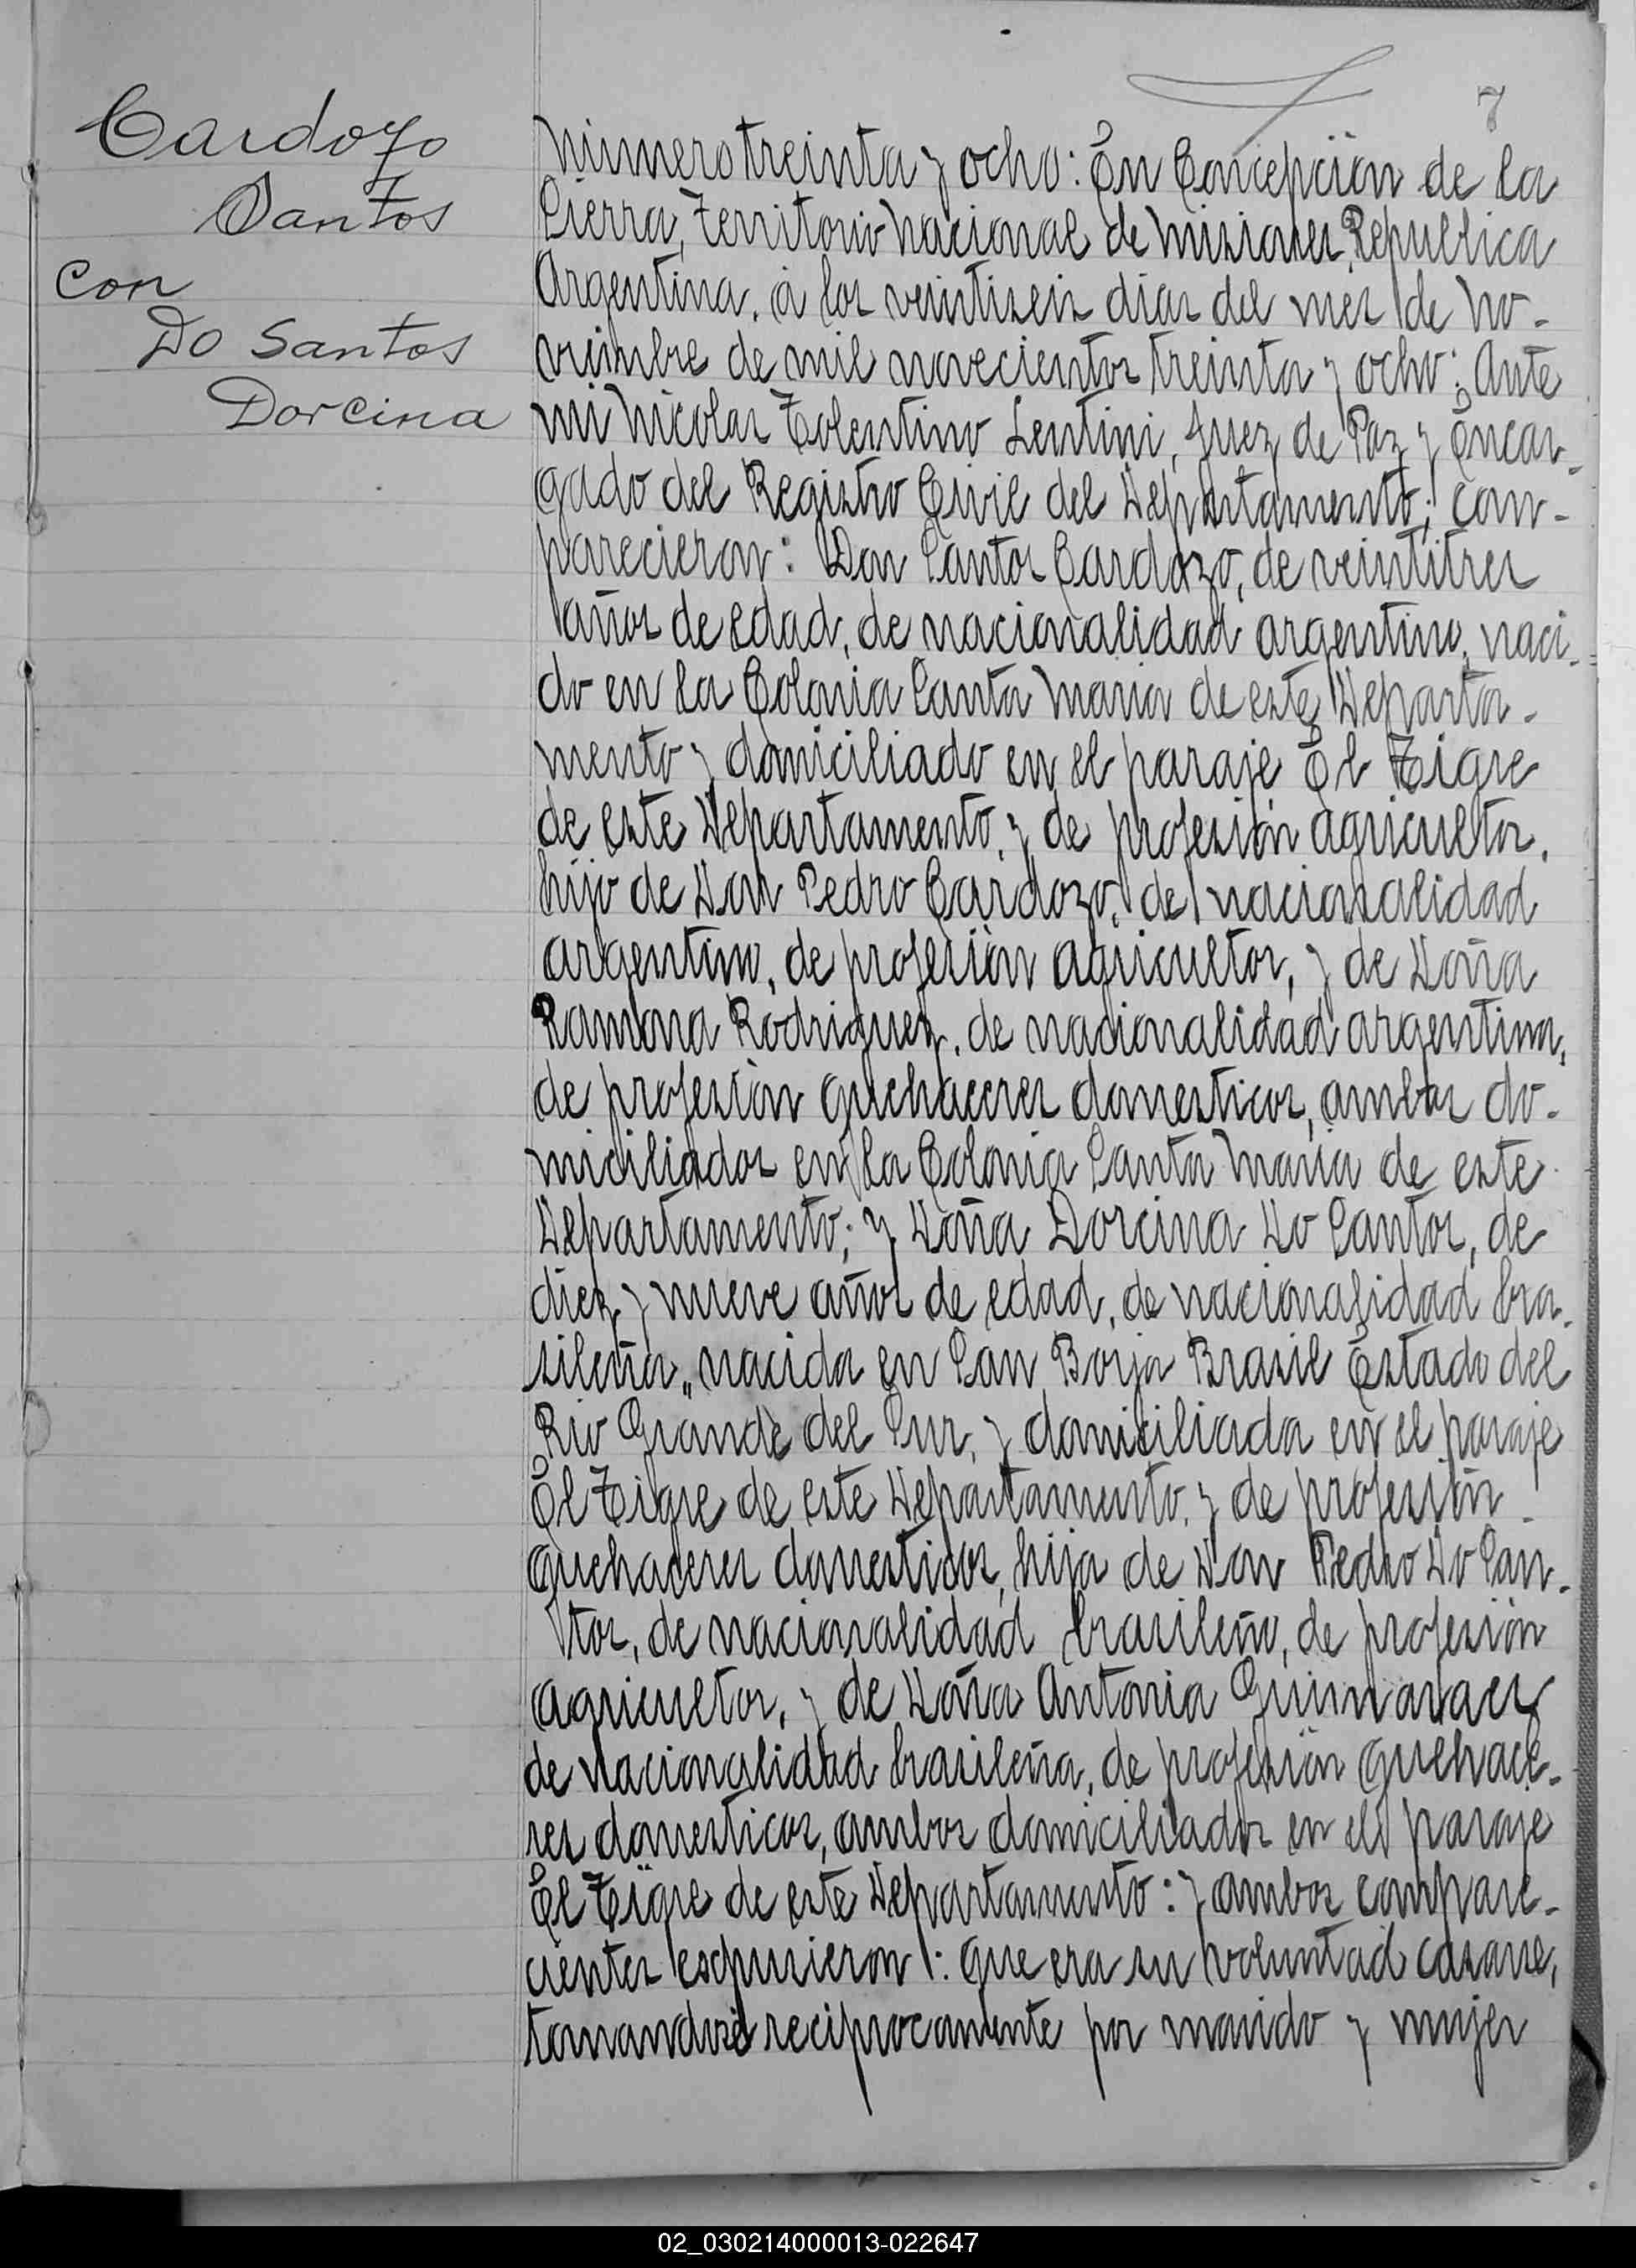 7
Cardozo
Santos
Con
Do Santos
Dorcina
Número treinta y ocho: En Concepción de la
Sierra, Territorio Nacional de Misiones, Republica
Argentina, á los veintiseis dias del mes de No-
viembre de mil novecientos treinta y ocho: Ante
mi Nicolas Tolentino Lentini, Juez de Paz y Encar-
gado del Registro Civil del Departamento; com-
parecieron: Don Santos Cardozo, de veintitres
años de edad, de nacionalidad argentino, naci-
do en la Colonia Santa Maria de este Departa-
mento y domiciliado en el paraje El Tigre
de este Departamento, y de profesión agricultor,
hijo de Don Pedro Cardozo, de nacionalidad
argentino, de profesión agricultor, y de Doña
Ramona Rodriguez, de nacionalidad argentina,
de profesión quehaceres domesticos, ambos do-
miciliados en la Colonia Santa Maria de este
Departamento; y Doña Dorcina Do Santos, de
diez y nueve años de edad, de nacionalidad bra-
sileña, nacida en San Borja Brasil Estado del
Rio Grande del Sur, y domiciliada en el paraje
El Tigre de este Departamento, y de profesión
quehaceres domesticos, hija de Don Pedro Do San-
tos, de nacionalidad brasileño, de profesión
agricultor, y de Doña Antonia Guimaraes
de nacionalidad brasileña, de profesión quehace-
res domesticos, ambos domiciliados en el paraje
El Tigre de este Departamento: y ambos compare-
cientes espusieron: que era su voluntad casarse,
tomandose reciprocamente por marido y mujer
02_030214000013-022647